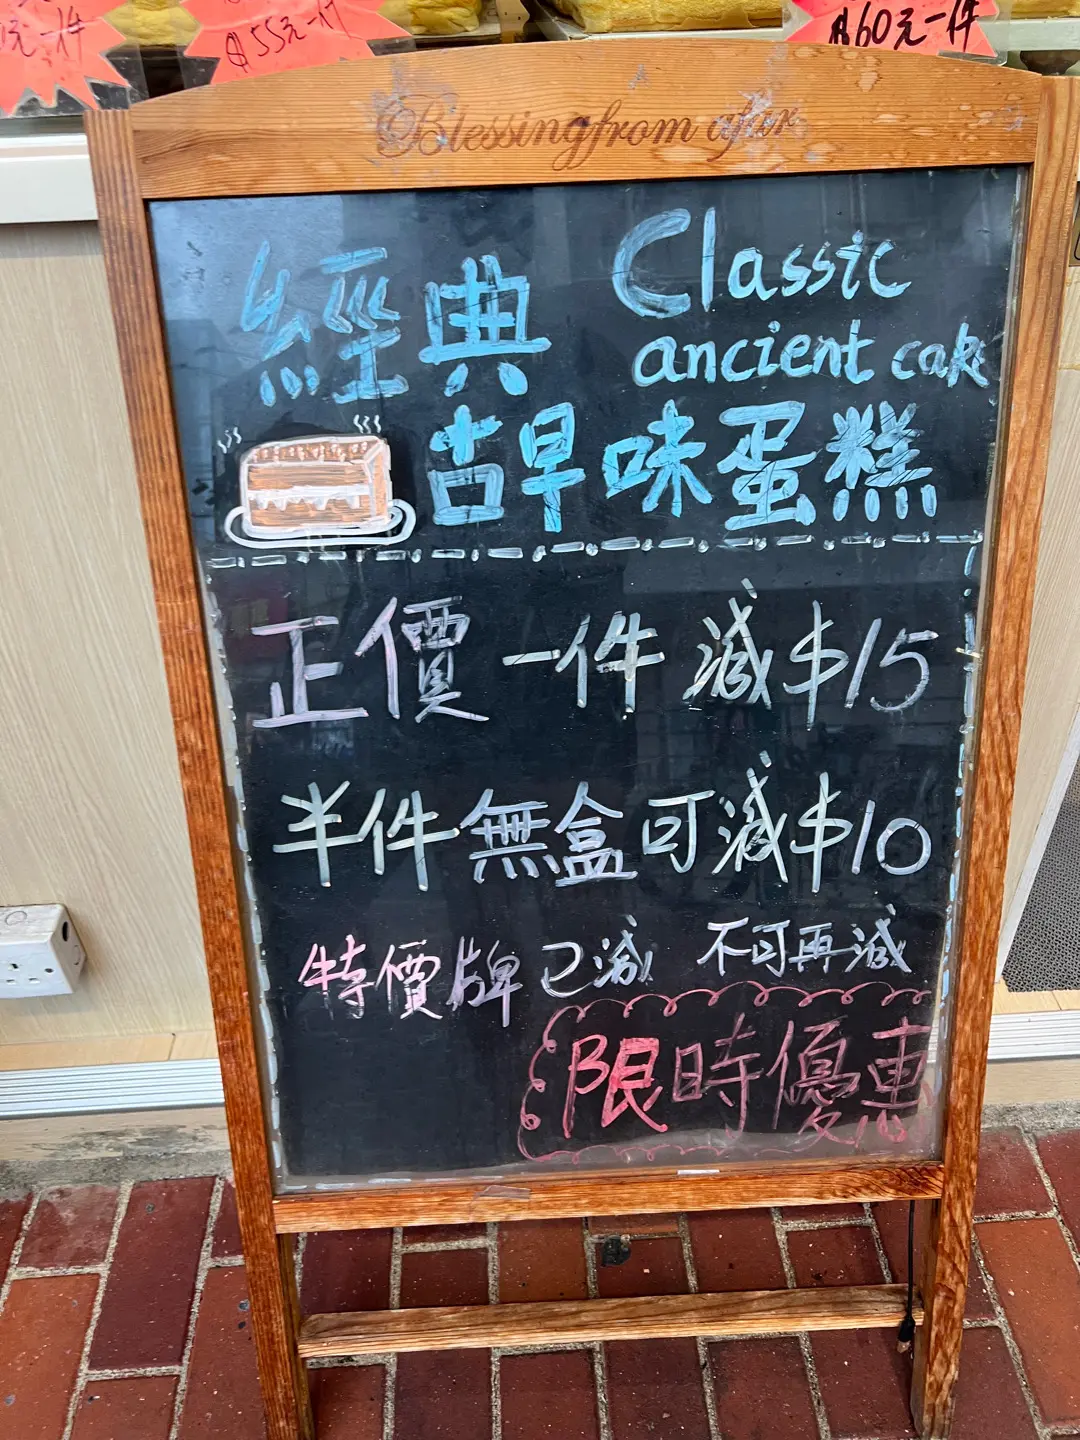 $55元一件
$60元一件
Blessing from afar
經典
Classic
ancient cake
古早味蛋糕
正價一件減$15
半件無盒可減$10
特價牌已減 不可再減
限時優惠